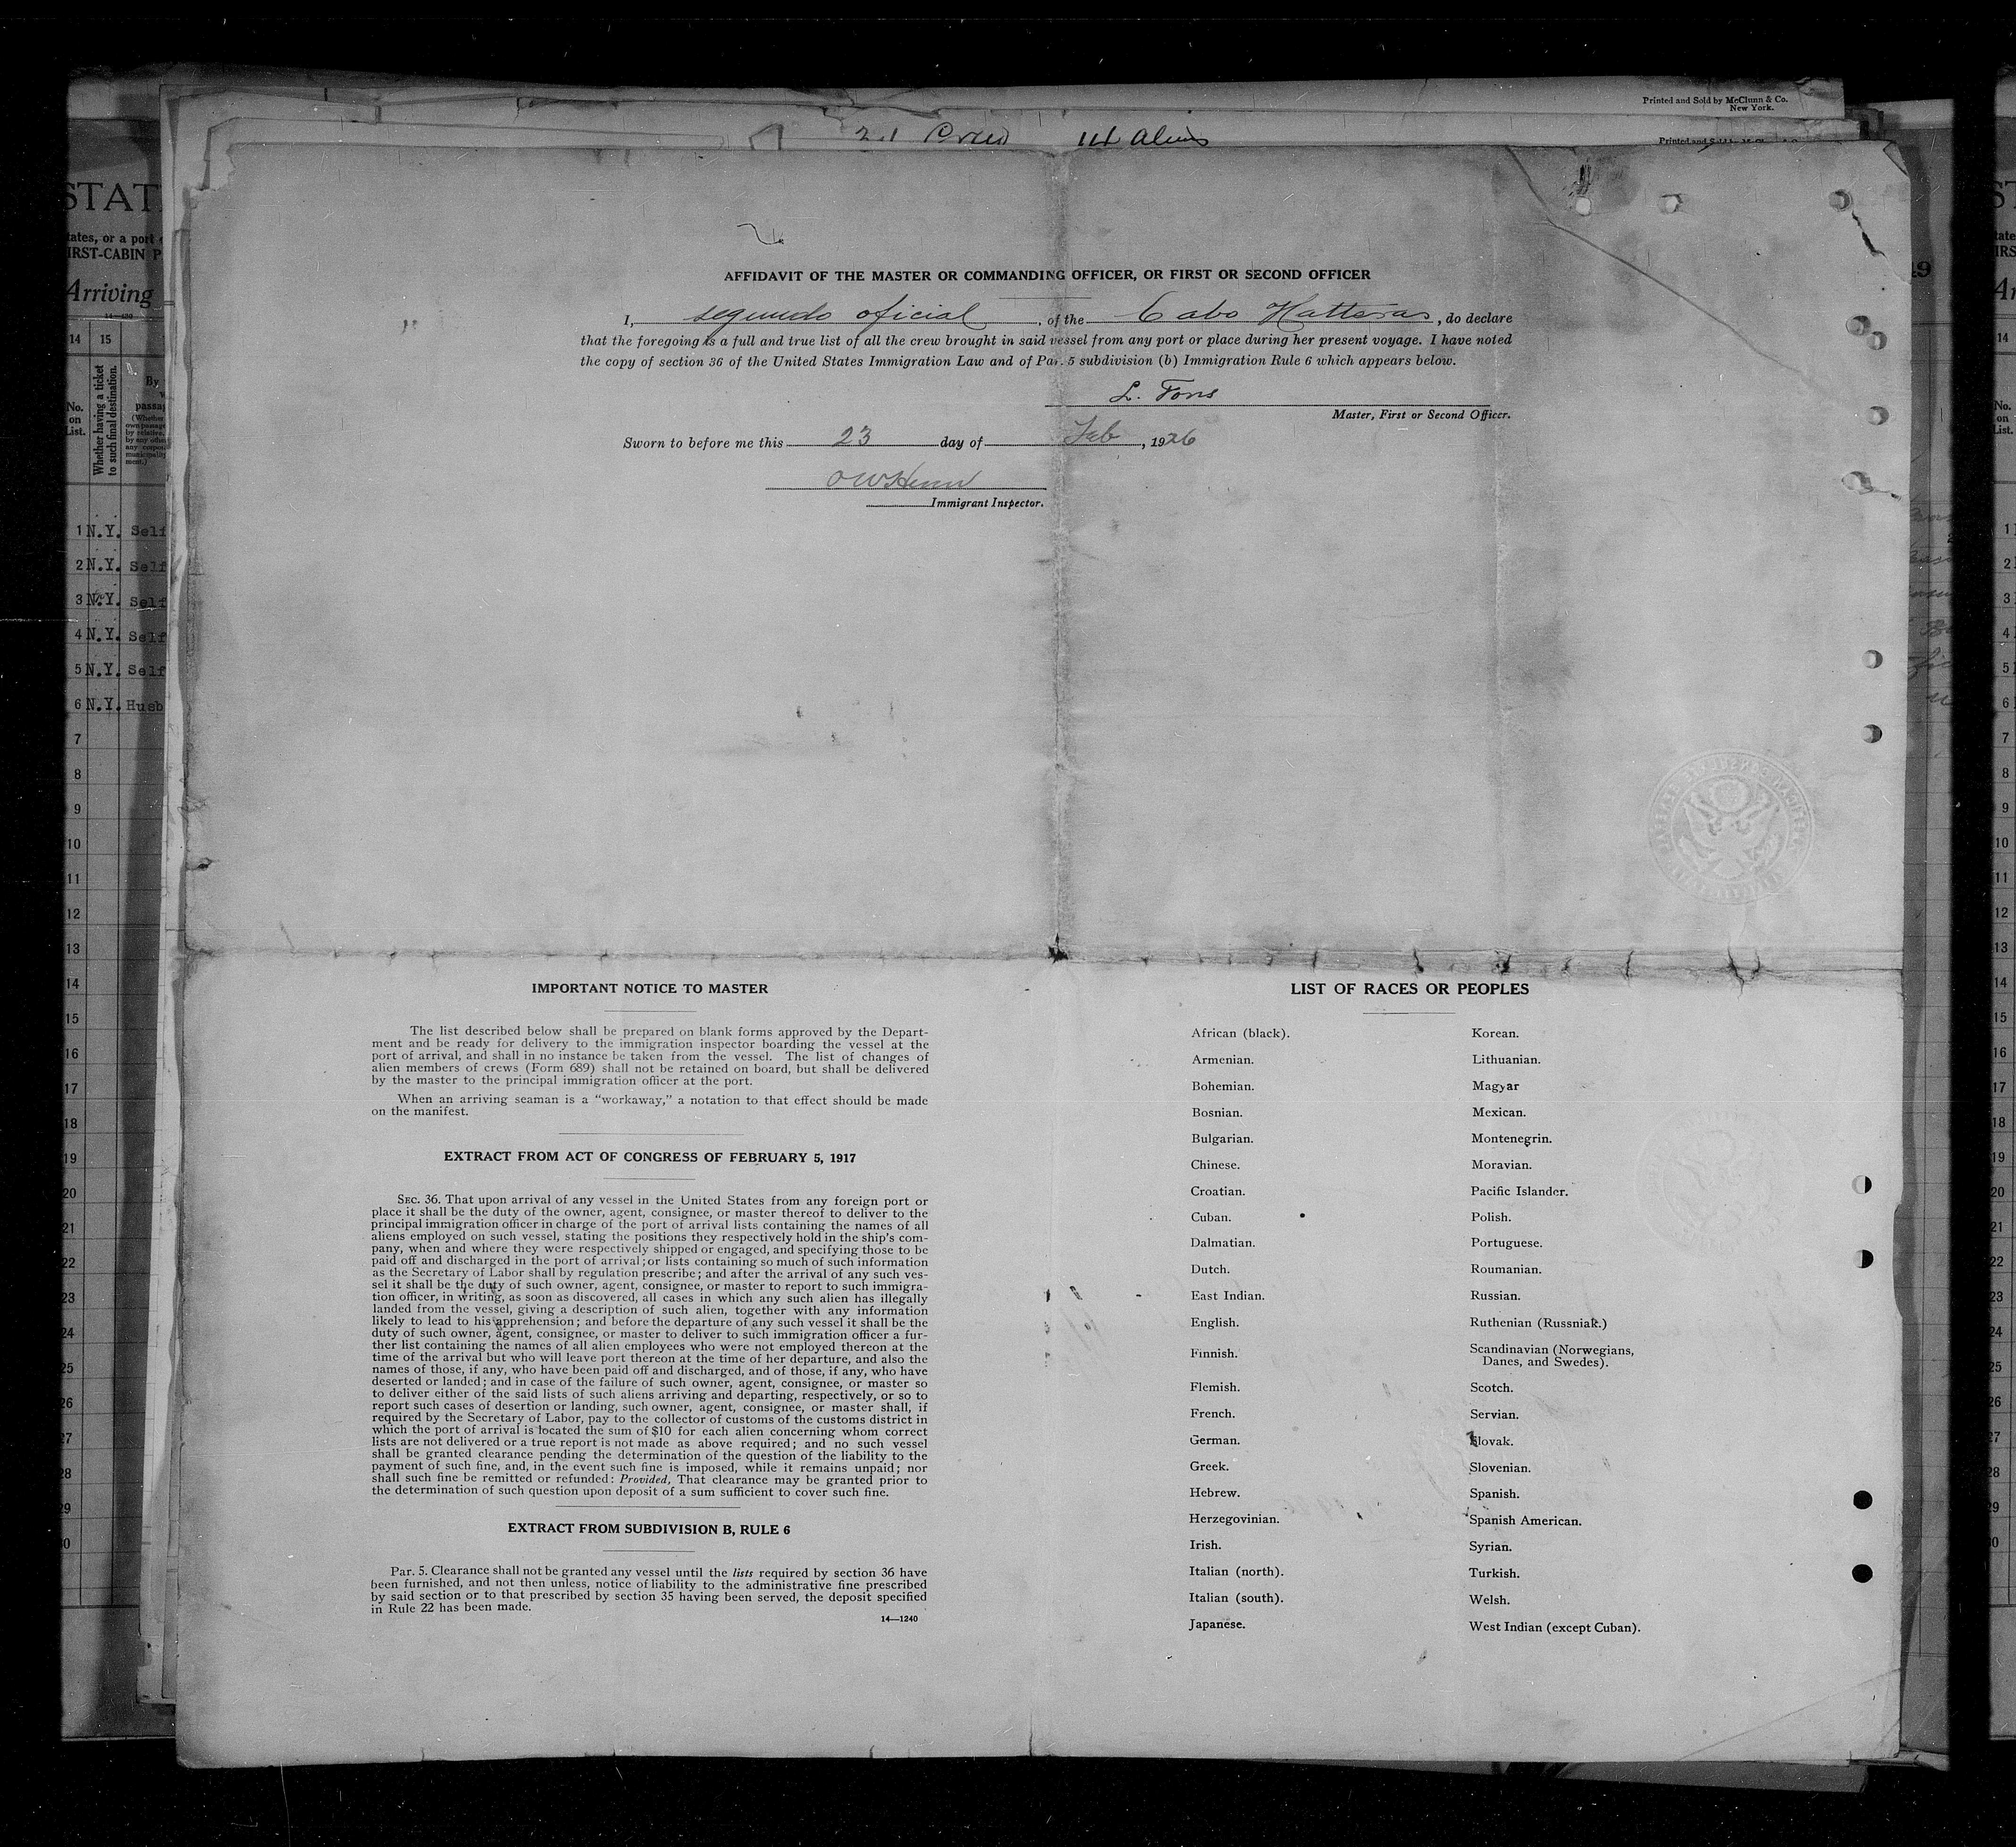 Printed and Sold by McClunn & Co.
New York.
Crew
Aliens
STAT
tates, or a port
IRST-CABIN P
Arriving
14 15
No.
on
List.
Whether having a ticket
to such final destination.
By
passa
1 N.Y. Self
2 N.Y. Self
3 N.Y. Self
4 N.Y. Self
5 N.Y. Self
6 N.Y. Husb
7
8
9
10
11
12
13
14
15
16
17
18
19
20
21
22
23
24
25
26
27
28
29
30
AFFIDAVIT OF THE MASTER OR COMMANDING OFFICER, OR FIRST OR SECOND OFFICER
I, segundo oficial, of the Cabo Hatteras, do declare
that the foregoing is a full and true list of all the crew brought in said vessel from any port or place during her present voyage. I have noted
the copy of section 36 of the United States Immigration Law and of Par. 5 subdivision (b) Immigration Rule 6 which appears below.
L. Fons
Master, First or Second Officer.
Sworn to before me this 23 day of Feb, 1926
Immigrant Inspector.
IMPORTANT NOTICE TO MASTER
The list described below shall be prepared on blank forms approved by the Depart-
ment and be ready for delivery to the immigration inspector boarding the vessel at the
port of arrival, and shall in no instance be taken from the vessel. The list of changes of
alien members of crews (Form 689) shall not be retained on board, but shall be delivered
by the master to the principal immigration officer at the port.
When an arriving seaman is a "workaway," a notation to that effect should be made
on the manifest.
EXTRACT FROM ACT OF CONGRESS OF FEBRUARY 5, 1917
SEC. 36. That upon arrival of any vessel in the United States from any foreign port or
place it shall be the duty of the owner, agent, consignee, or master thereof to deliver to the
principal immigration officer in charge of the port of arrival lists containing the names of all
aliens employed on such vessel, stating the positions they respectively hold in the ship's com-
pany, when and where they were respectively shipped or engaged, and specifying those to be
paid off and discharged in the port of arrival; or lists containing so much of such information
as the Secretary of Labor shall by regulation prescribe; and after the arrival of any such ves-
sel it shall be the duty of such owner, agent, consignee, or master to report to such immigra-
tion officer, in writing, as soon as discovered, all cases in which any such alien has illegally
landed from the vessel, giving a description of such alien, together with any information
likely to lead to his apprehension; and before the departure of any such vessel it shall be the
duty of such owner, agent, consignee, or master to deliver to such immigration officer a fur-
ther list containing the names of all alien employees who were not employed thereon at the
time of the arrival but who will leave port thereon at the time of her departure, and also the
names of those, if any, who have been paid off and discharged, and of those, if any, who have
deserted or landed; and in case of the failure of such owner, agent, consignee, or master so
to deliver either of the said lists of such aliens arriving and departing, respectively, or so to
report such cases of desertion or landing, such owner, agent, consignee, or master shall, if
required by the Secretary of Labor, pay to the collector of customs of the customs district in
which the port of arrival is located the sum of $10 for each alien concerning whom correct
lists are not delivered or a true report is not made as above required; and no such vessel
shall be granted clearance pending the determination of the question of the liability to the
payment of such fine, and, in the event such fine is imposed, while it remains unpaid; nor
shall such fine be remitted or refunded: Provided, That clearance may be granted prior to
the determination of such question upon deposit of a sum sufficient to cover such fine.
EXTRACT FROM SUBDIVISION B, RULE 6
Par. 5. Clearance shall not be granted any vessel until the lists required by section 36 have
been furnished, and not then unless, notice of liability to the administrative fine prescribed
by said section or to that prescribed by section 35 having been served, the deposit specified
in Rule 22 has been made.
14—1240
LIST OF RACES OR PEOPLES
African (black).
Armenian.
Bohemian.
Bosnian.
Bulgarian.
Chinese.
Croatian.
Cuban.
Dalmatian.
Dutch.
East Indian.
English.
Finnish.
Flemish.
French.
German.
Greek.
Hebrew.
Herzegovinian.
Irish.
Italian (north).
Italian (south).
Japanese.
Korean.
Lithuanian.
Magyar
Mexican.
Montenegrin.
Moravian.
Pacific Islander.
Polish.
Portuguese.
Roumanian.
Russian.
Ruthenian (Russniak.)
Scandinavian (Norwegians,
Danes, and Swedes).
Scotch.
Servian.
Slovak.
Slovenian.
Spanish.
Spanish American.
Syrian.
Turkish.
Welsh.
West Indian (except Cuban).